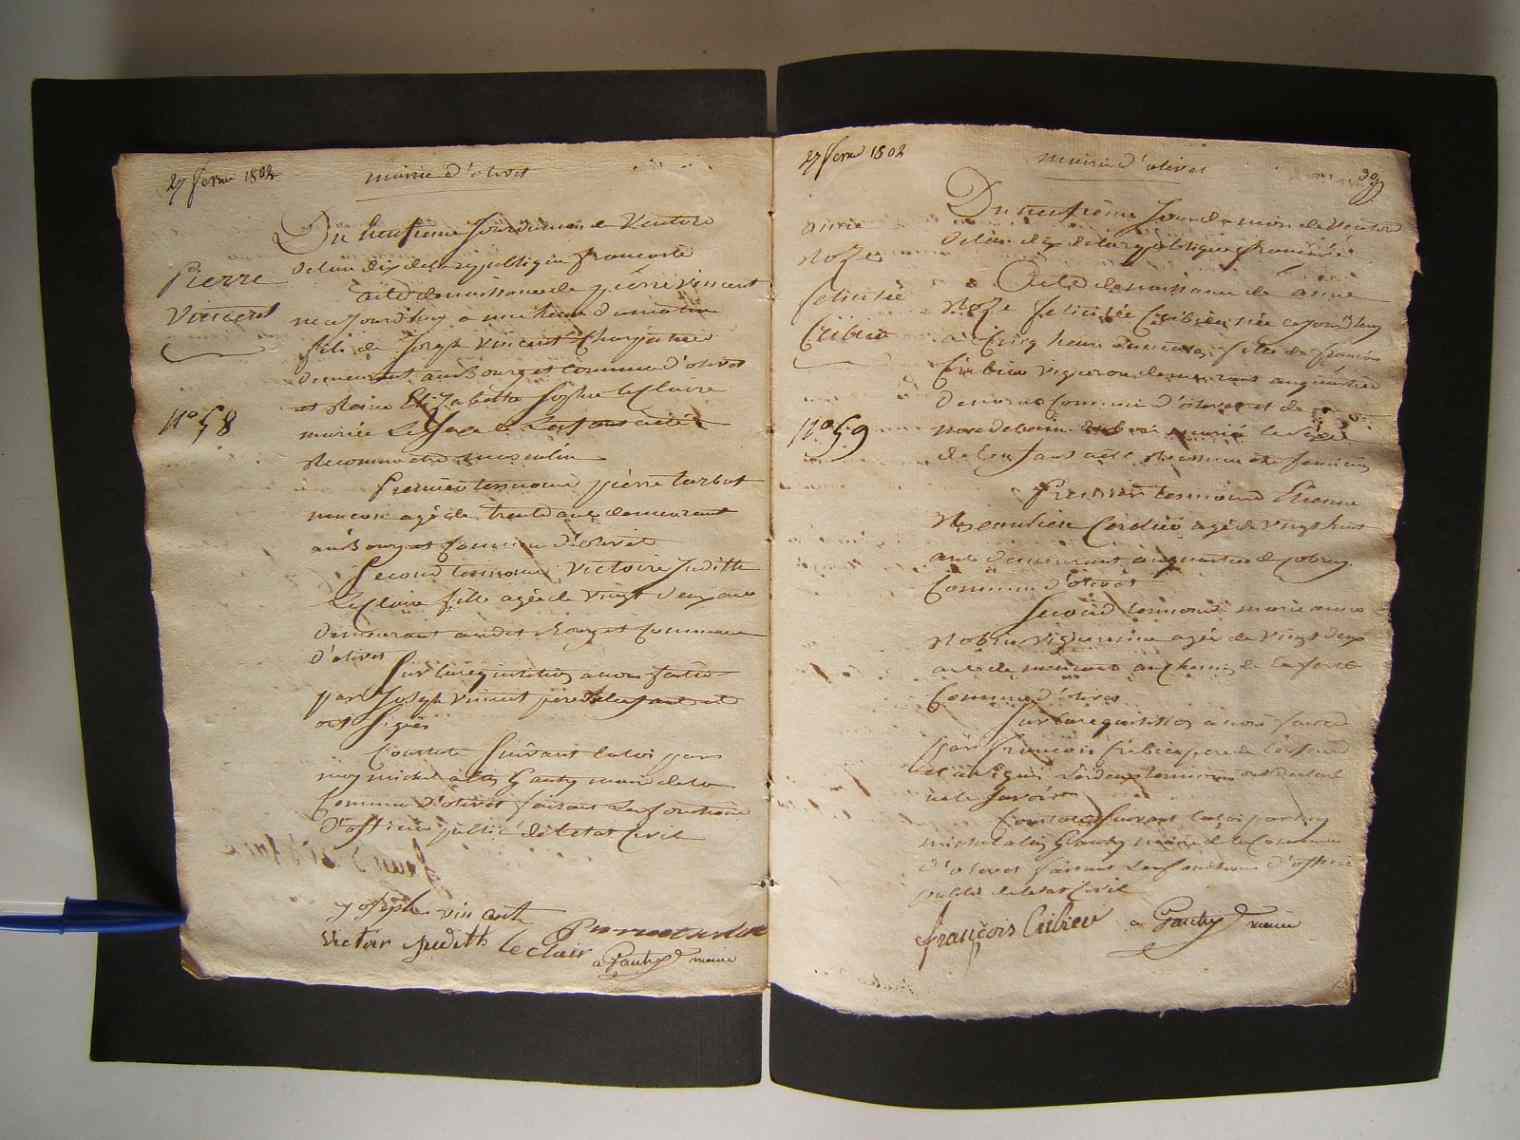 27 fevrier 1802
mairie d'olivet
Du huitieme Jour du mois de Ventose
de l'an dix de la republique francaise
Pierre
Vincent
n° 58
acte de naissance de pierre vincent
né ajourd'huy a une heure du matin
fils de Joseph Vincent Charpentier
demeurant au Bourg et commune d'olivet
et Reine Elizabette Sophie leClaire
mariée Le Sexe de L'enfant a été
Reconnu etre masculin
Premier temoins pierre turbot
macon agé de trente ans demeurant
au Bourg et commune d'olivet
Second temoins Victoire Judith
LeClaire fille agée de vingt deux ans
demeurant audit Bourg et Commune
d'olivet
Sur la requisition a nous faite
par Joseph Vincent pere de l'enfant et
ont signés
Constaté Suivant la loi par
moy michel alex Gaudry maire de la
Commune d'olivet faisant les fonctions
d'officier public de l'etat Civil
Joseph vin cent
victoir judith le clair
a Gaudry maire
27 fevrier 1802
mairie d'olivet
39
Du huitieme Jour du mois de Ventose
de l'an dix de la republique francaise
anne
Roze
felicitée
Cribier
n° 59
Acte de naissance de anne
Roze felicitée Cribier née ajourd'huy
a Cinq heure du matin fille de francois
Cribier vigneron demeurant au quartier
Commune d'olivet et de
mariée le Sexe
de l'enfant a été Reconnu etre feminin
Premier temoins Etienne
Cordier agé de vingt huit
ans demeurant au quartier de
Commune d'olivet
Second temoins marie anne
vigneronne agée de vingt deux
ans demeurant au Chemin de la ferté
Commune d'olivet
Sur la requisition a nous faite
par francois Cribier pere de l'enfant
et a signé Les deux temoins ont declaré
ne le Savoir
Constaté Suivant la loi par moy
michel alex Gaudry maire de la Commune
d'olivet faisant les fonctions d'officier
public de l'etat Civil
françois Cribier
a Gaudry maire